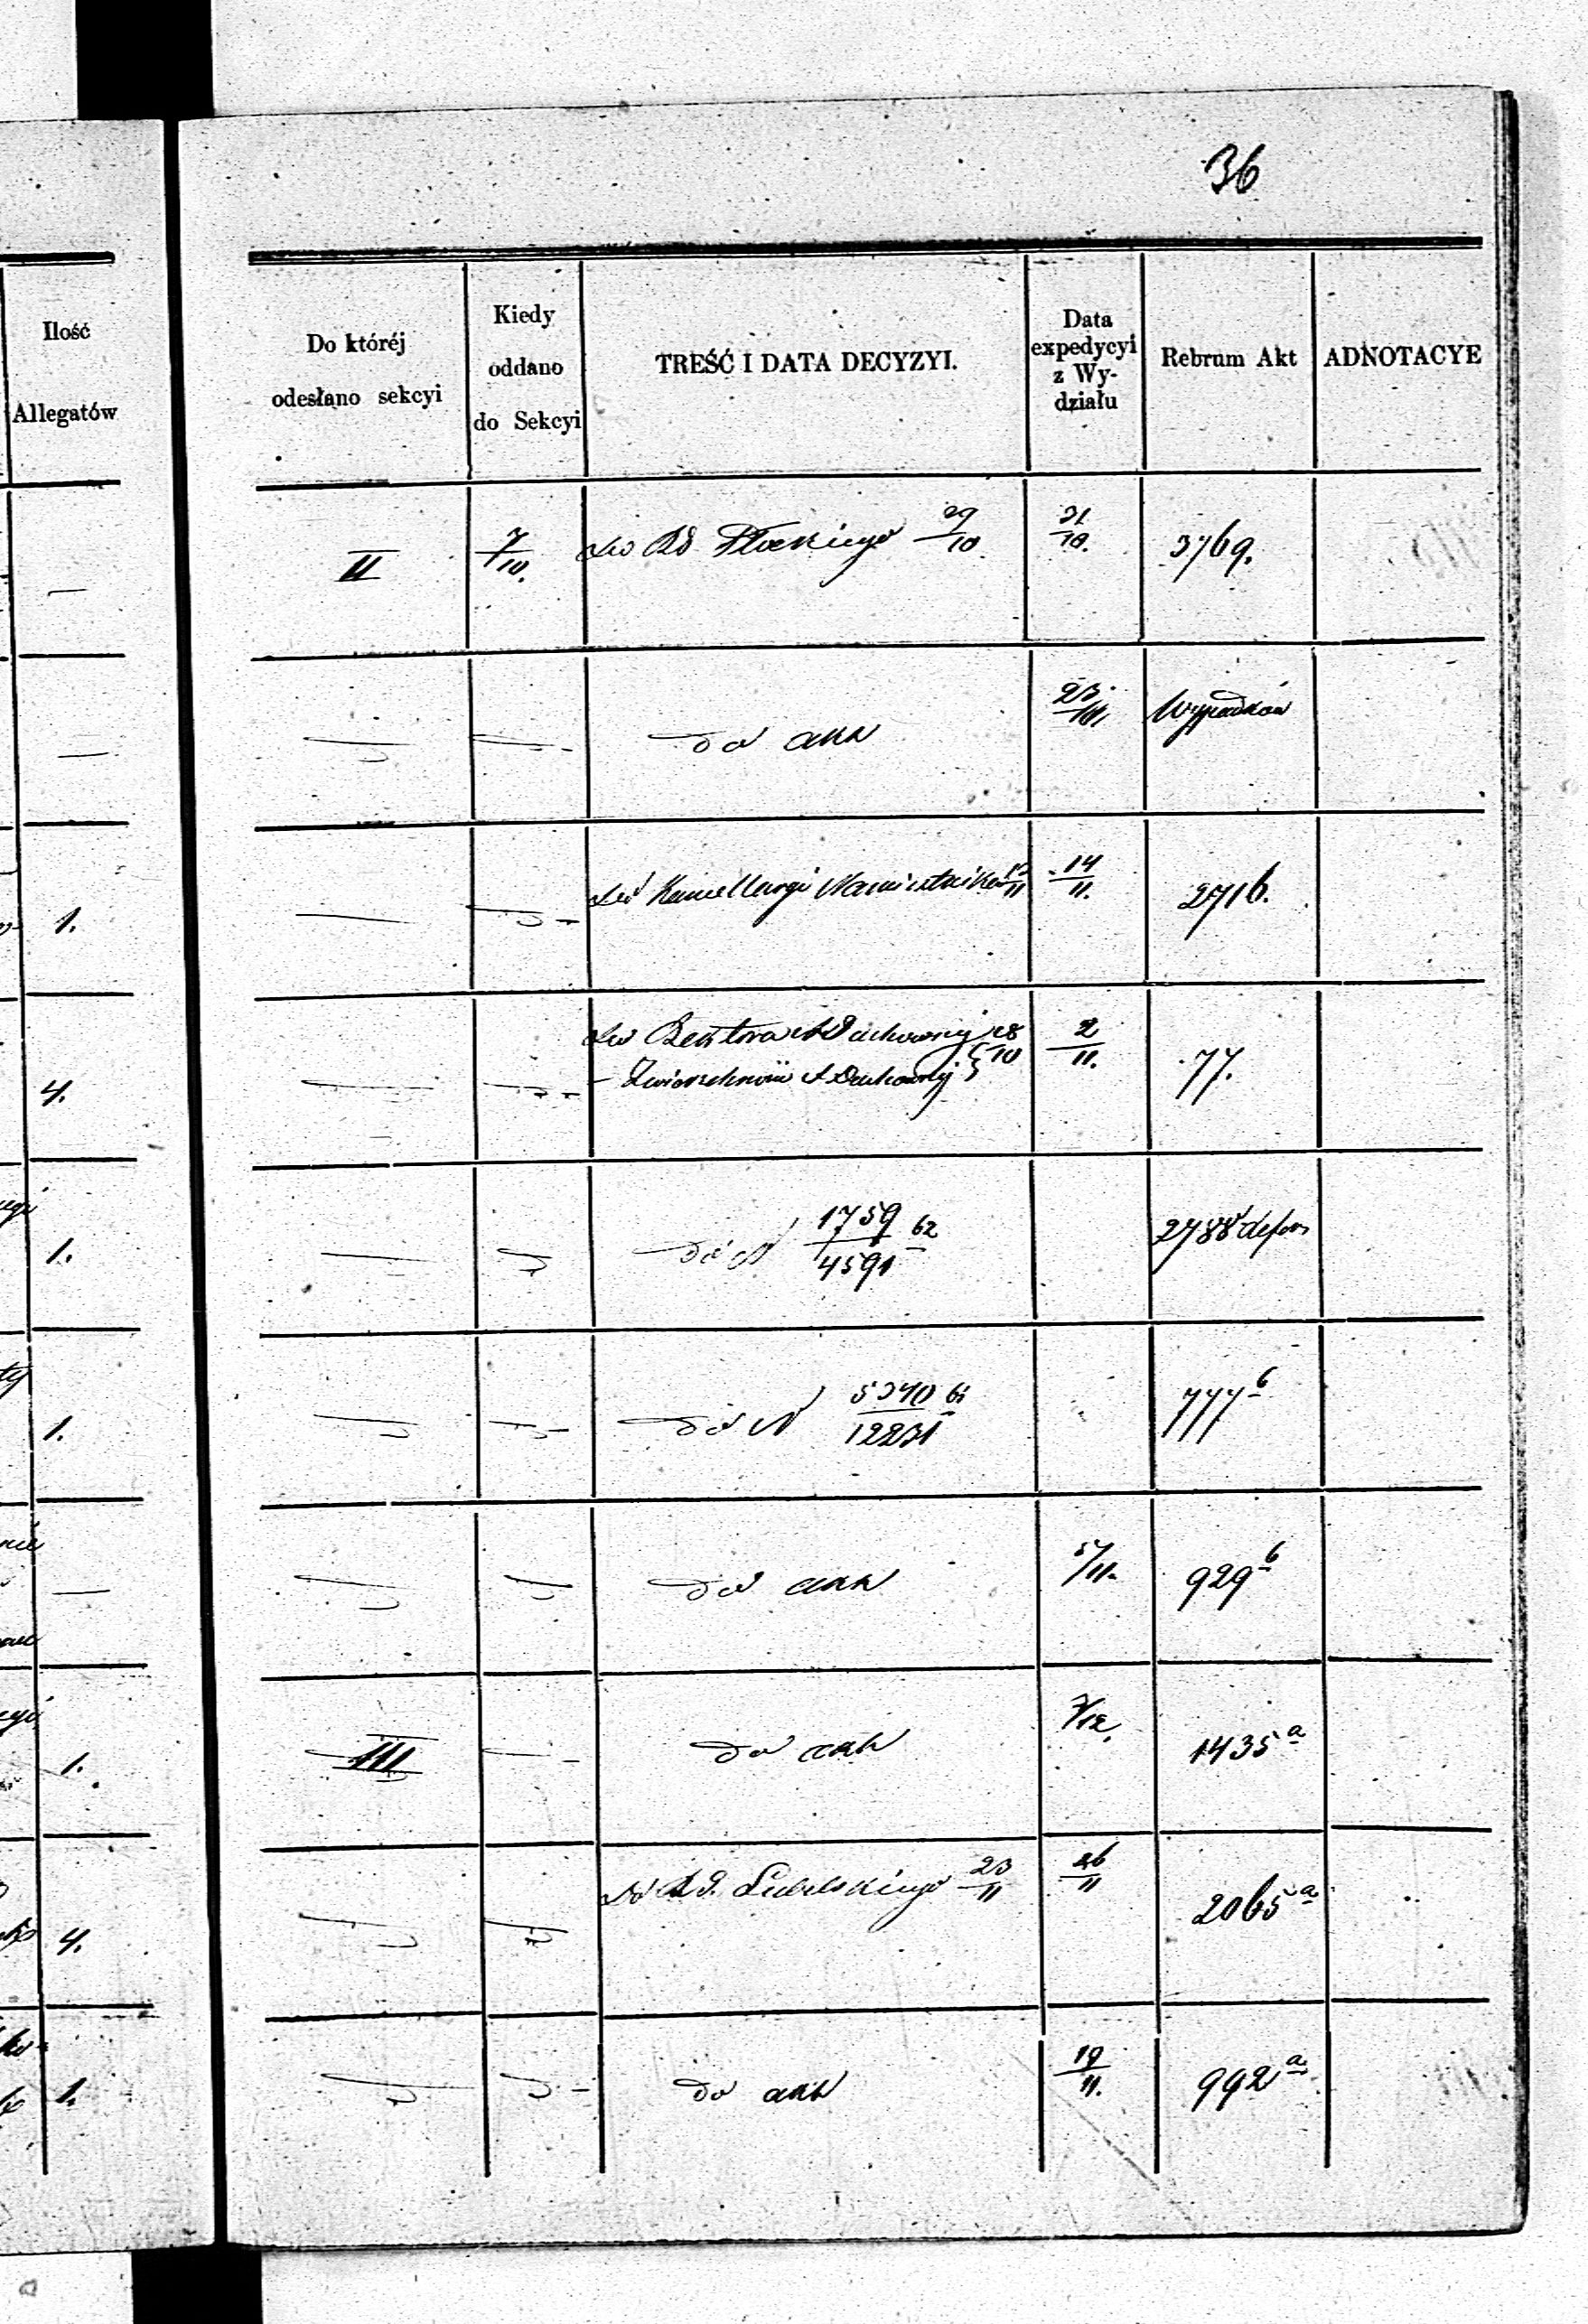 36
Ilość
Allegatów
Do któréj
odesłano sekcyi
Kiedy
oddano
do Sekcyi
TREŚĆ I DATA DECYZYI.
Data
expedycyi
z Wy-
działu
Rebrum Akt
ADNOTACYE
II 7/10. do Rd Płockiego 29/10 31/10. 3769.
—
do akt 23/10 Wypadków
—
1. do Kancellaryi Namiestnika 12/11 14/11. 2716.
do Rektora A Duchownej 28/10 2/11. 77.
4. – Zwierzchnéj A Duchownej
1. do N 1759/4591 62 2788
1. do N 5340/12231 777 b
— do akt 5/11. 929 b
1. III do akt 7/12. 1435 a
4. do R. G. Lubelskiego 23/11 26/11 2065 a
1. do akt 19/11. 992 a